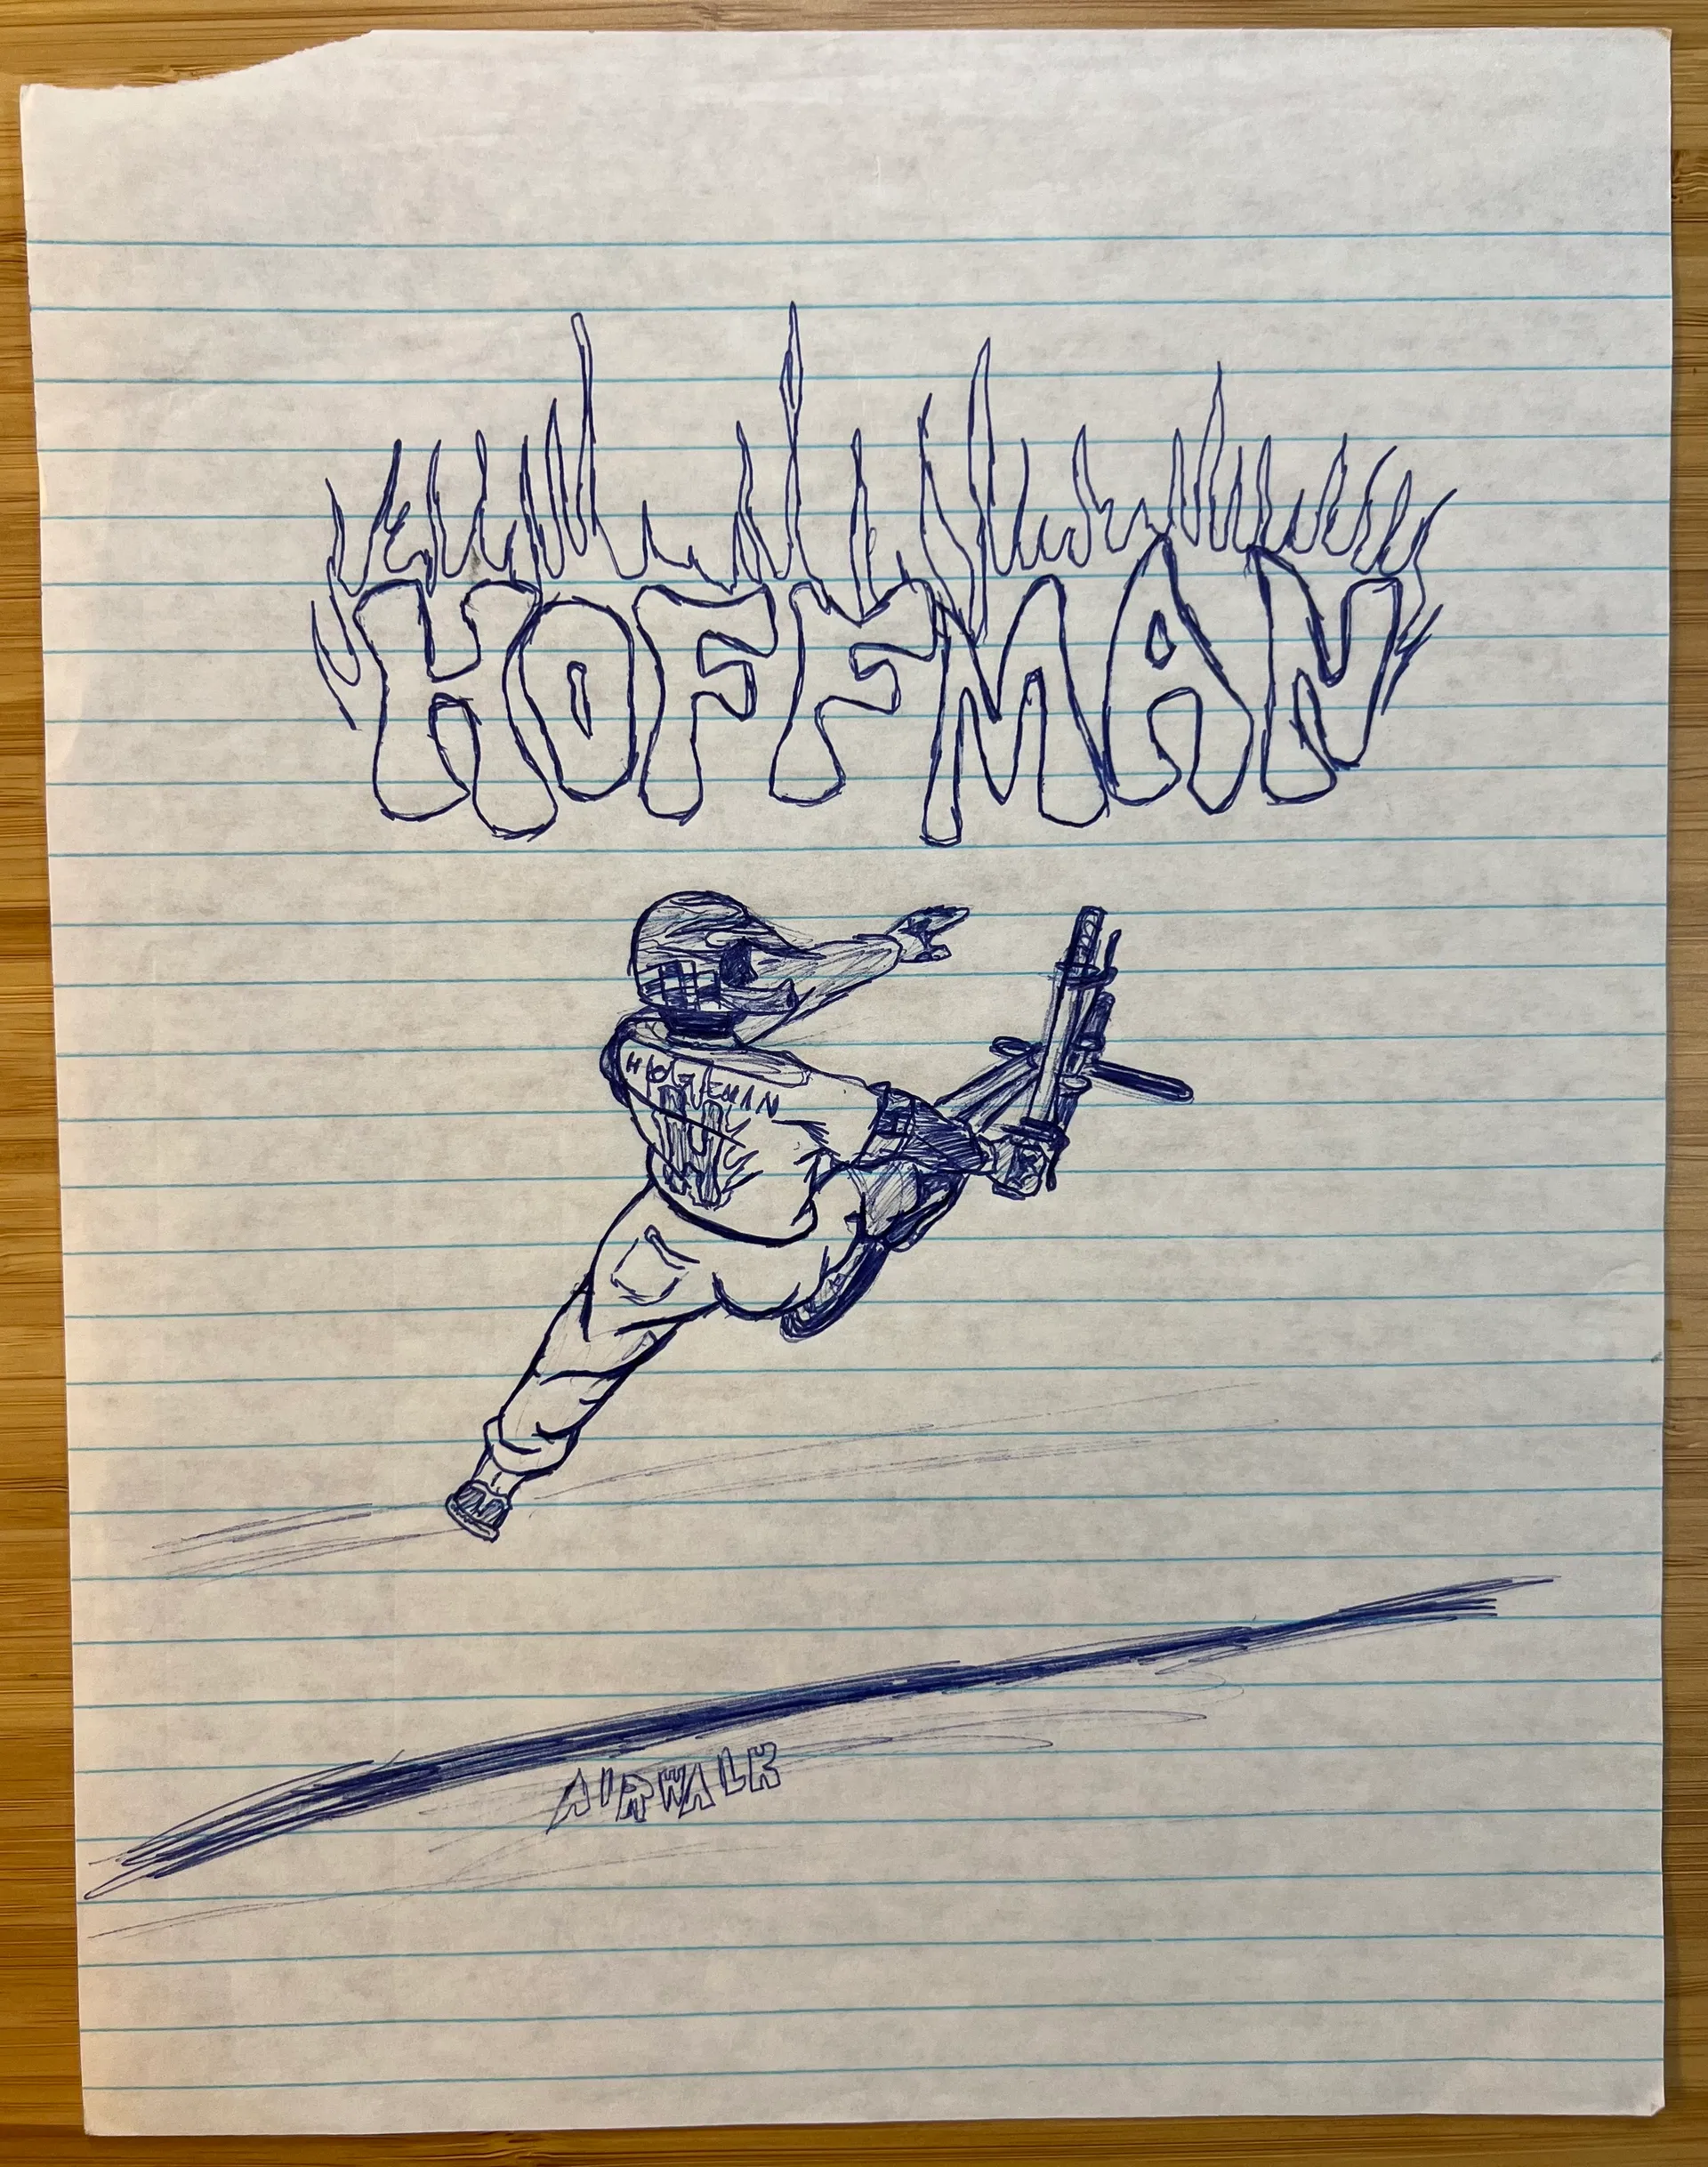 HOFFMAN
HOFFMAN
AIRWALK